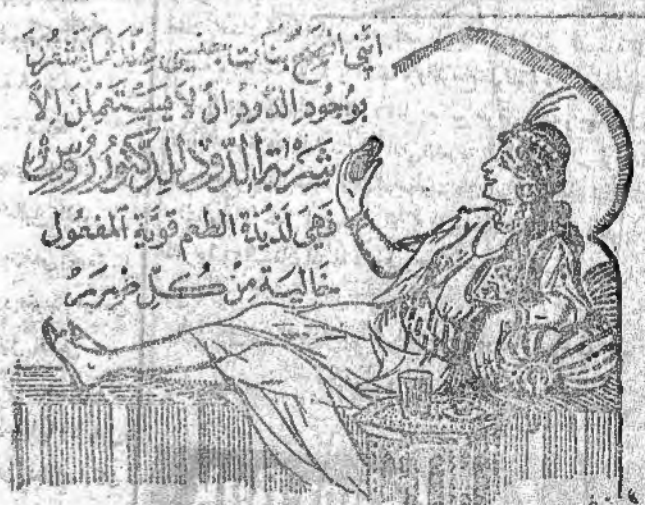 إنني أنصح بنات جنسي عندما يشعرن
بوجود الدود ان لا يستعملن إلا
شربة الدود للدكتور روس
فهي لذيذة الطعم قوية المفعول
خالية من كل ضرر